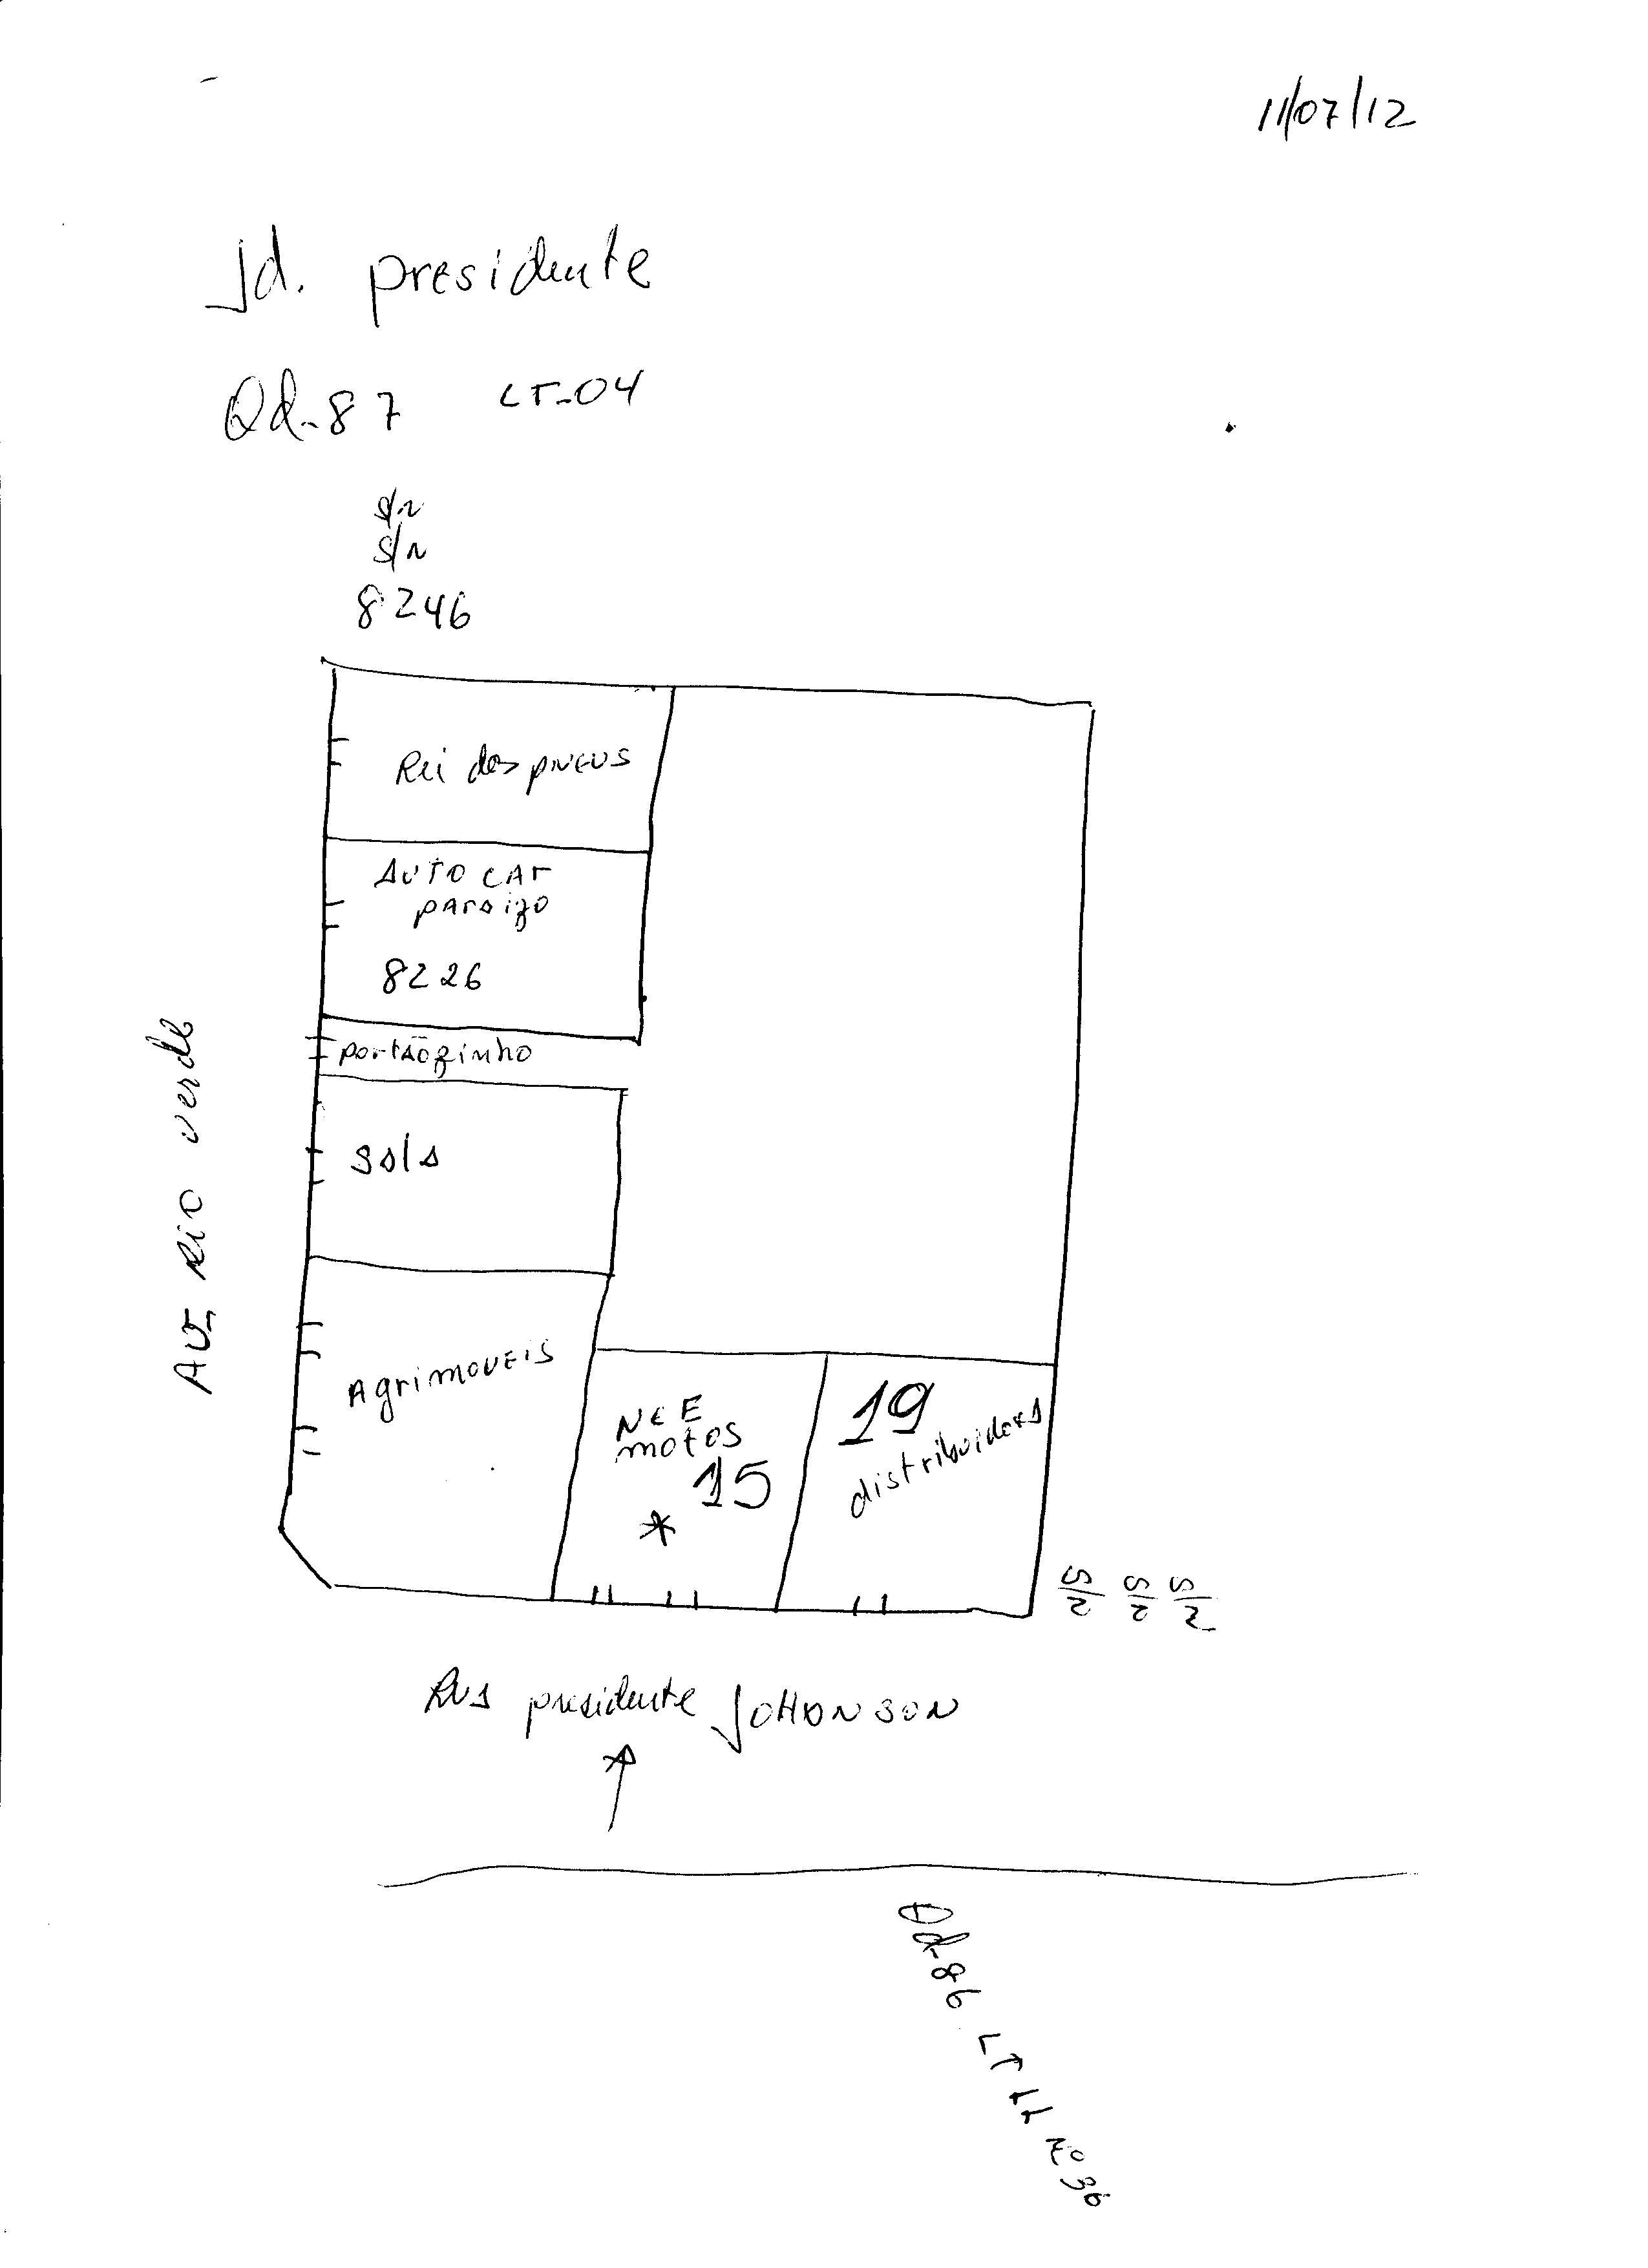 11/07/12
Jd. presidente
Qd-87 LT-04
s/n
s/n
8246
Rei dos pneus
AUTO CAr
parAizo
8226
portãozinho
sala
Agrimoveis
NCE
motos
15
*
19
distribuidora
Av. Rio verde
S/N S/N S/N
Rua presidente JOHANSON
Qd-86 LT 11 Nº 36